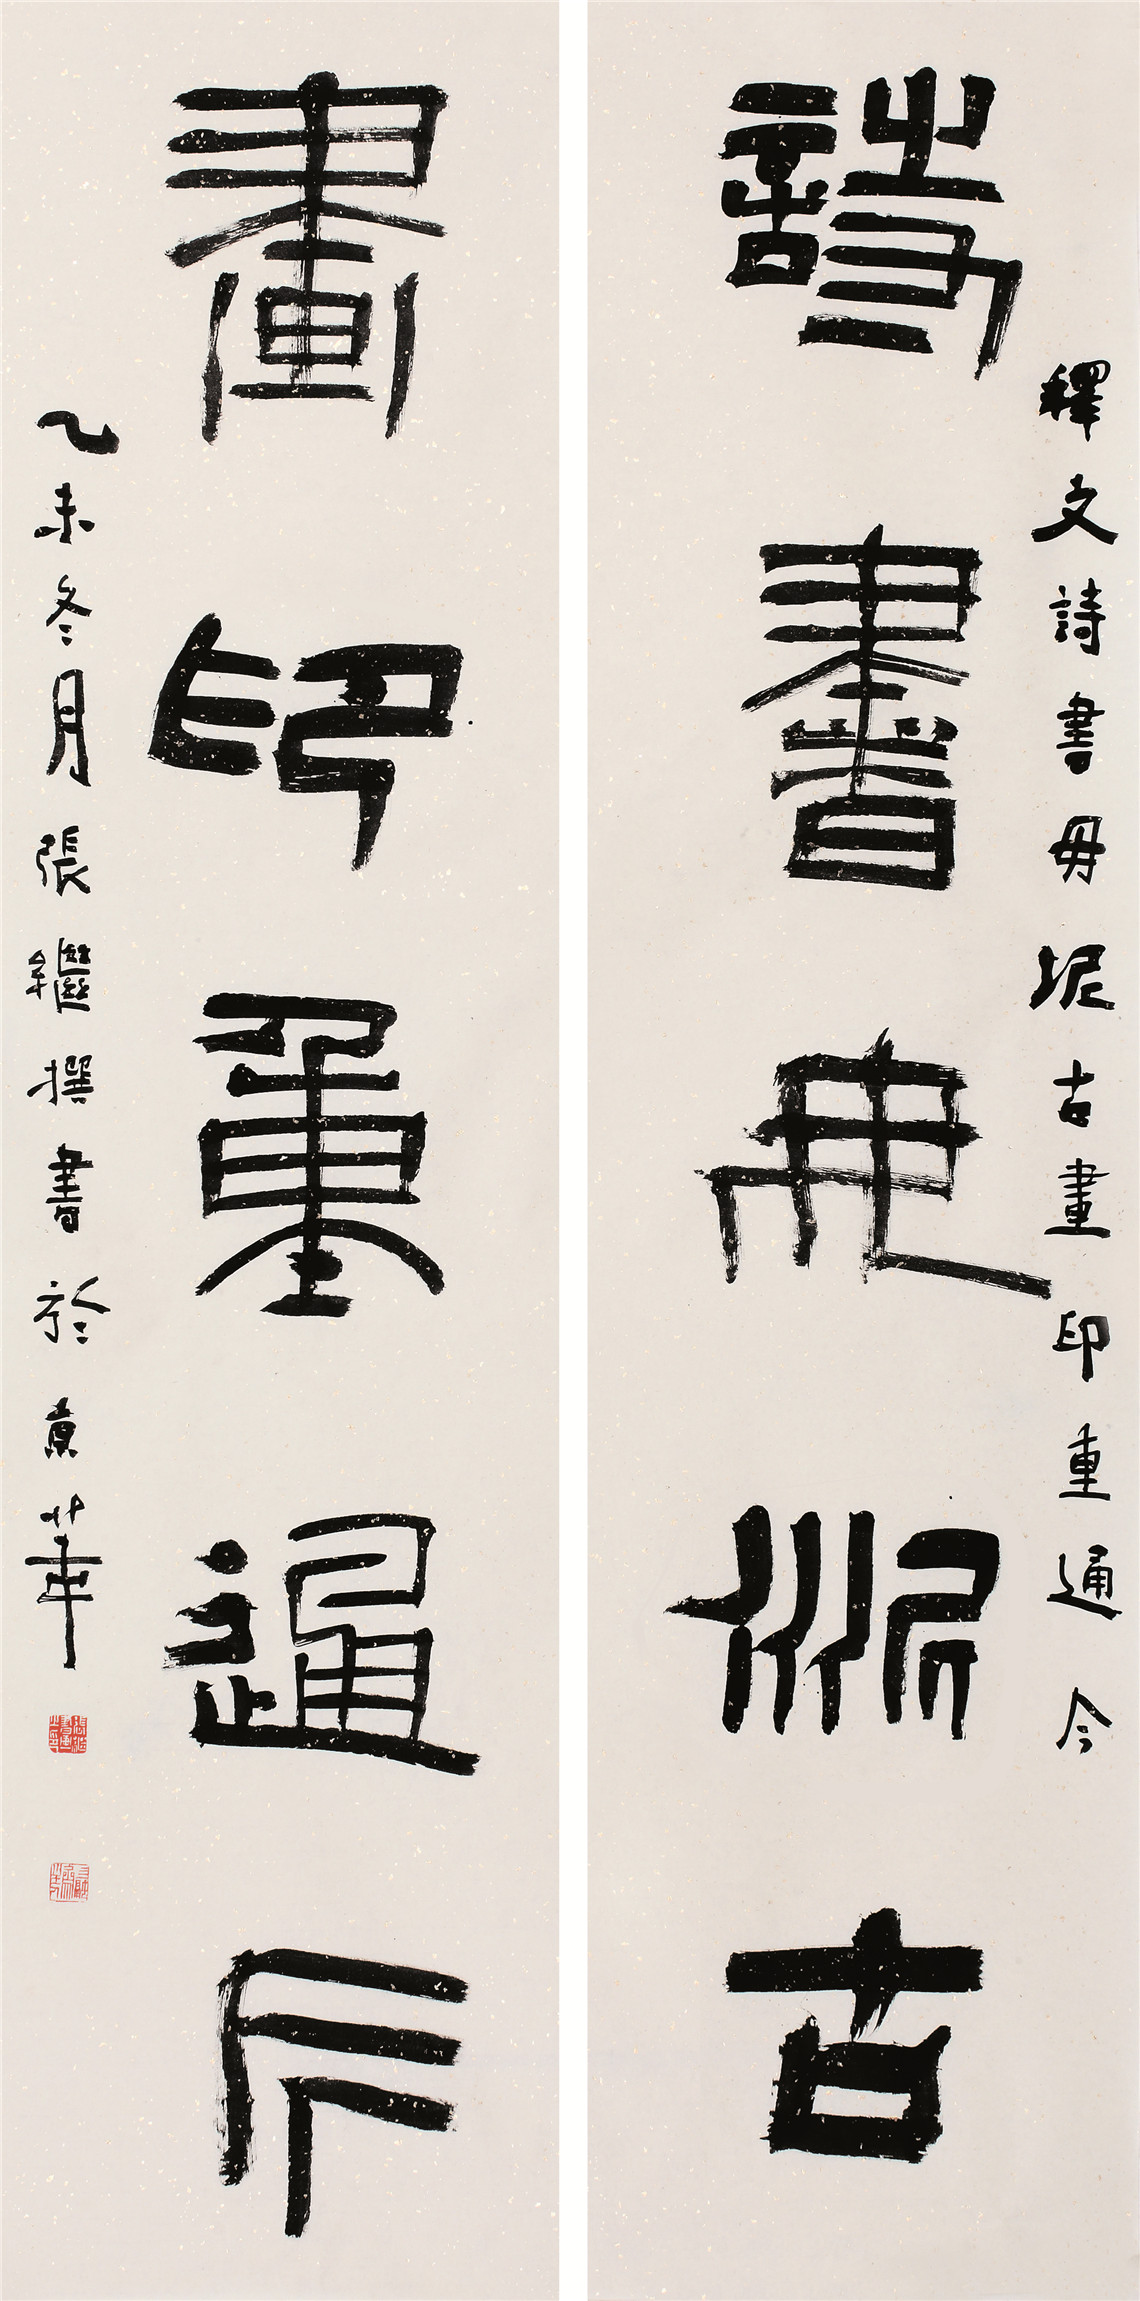 詩書毋泥古
釋文詩書毋泥古畫印重通今
畫印重通今
乙未冬月張繼撰書於京華